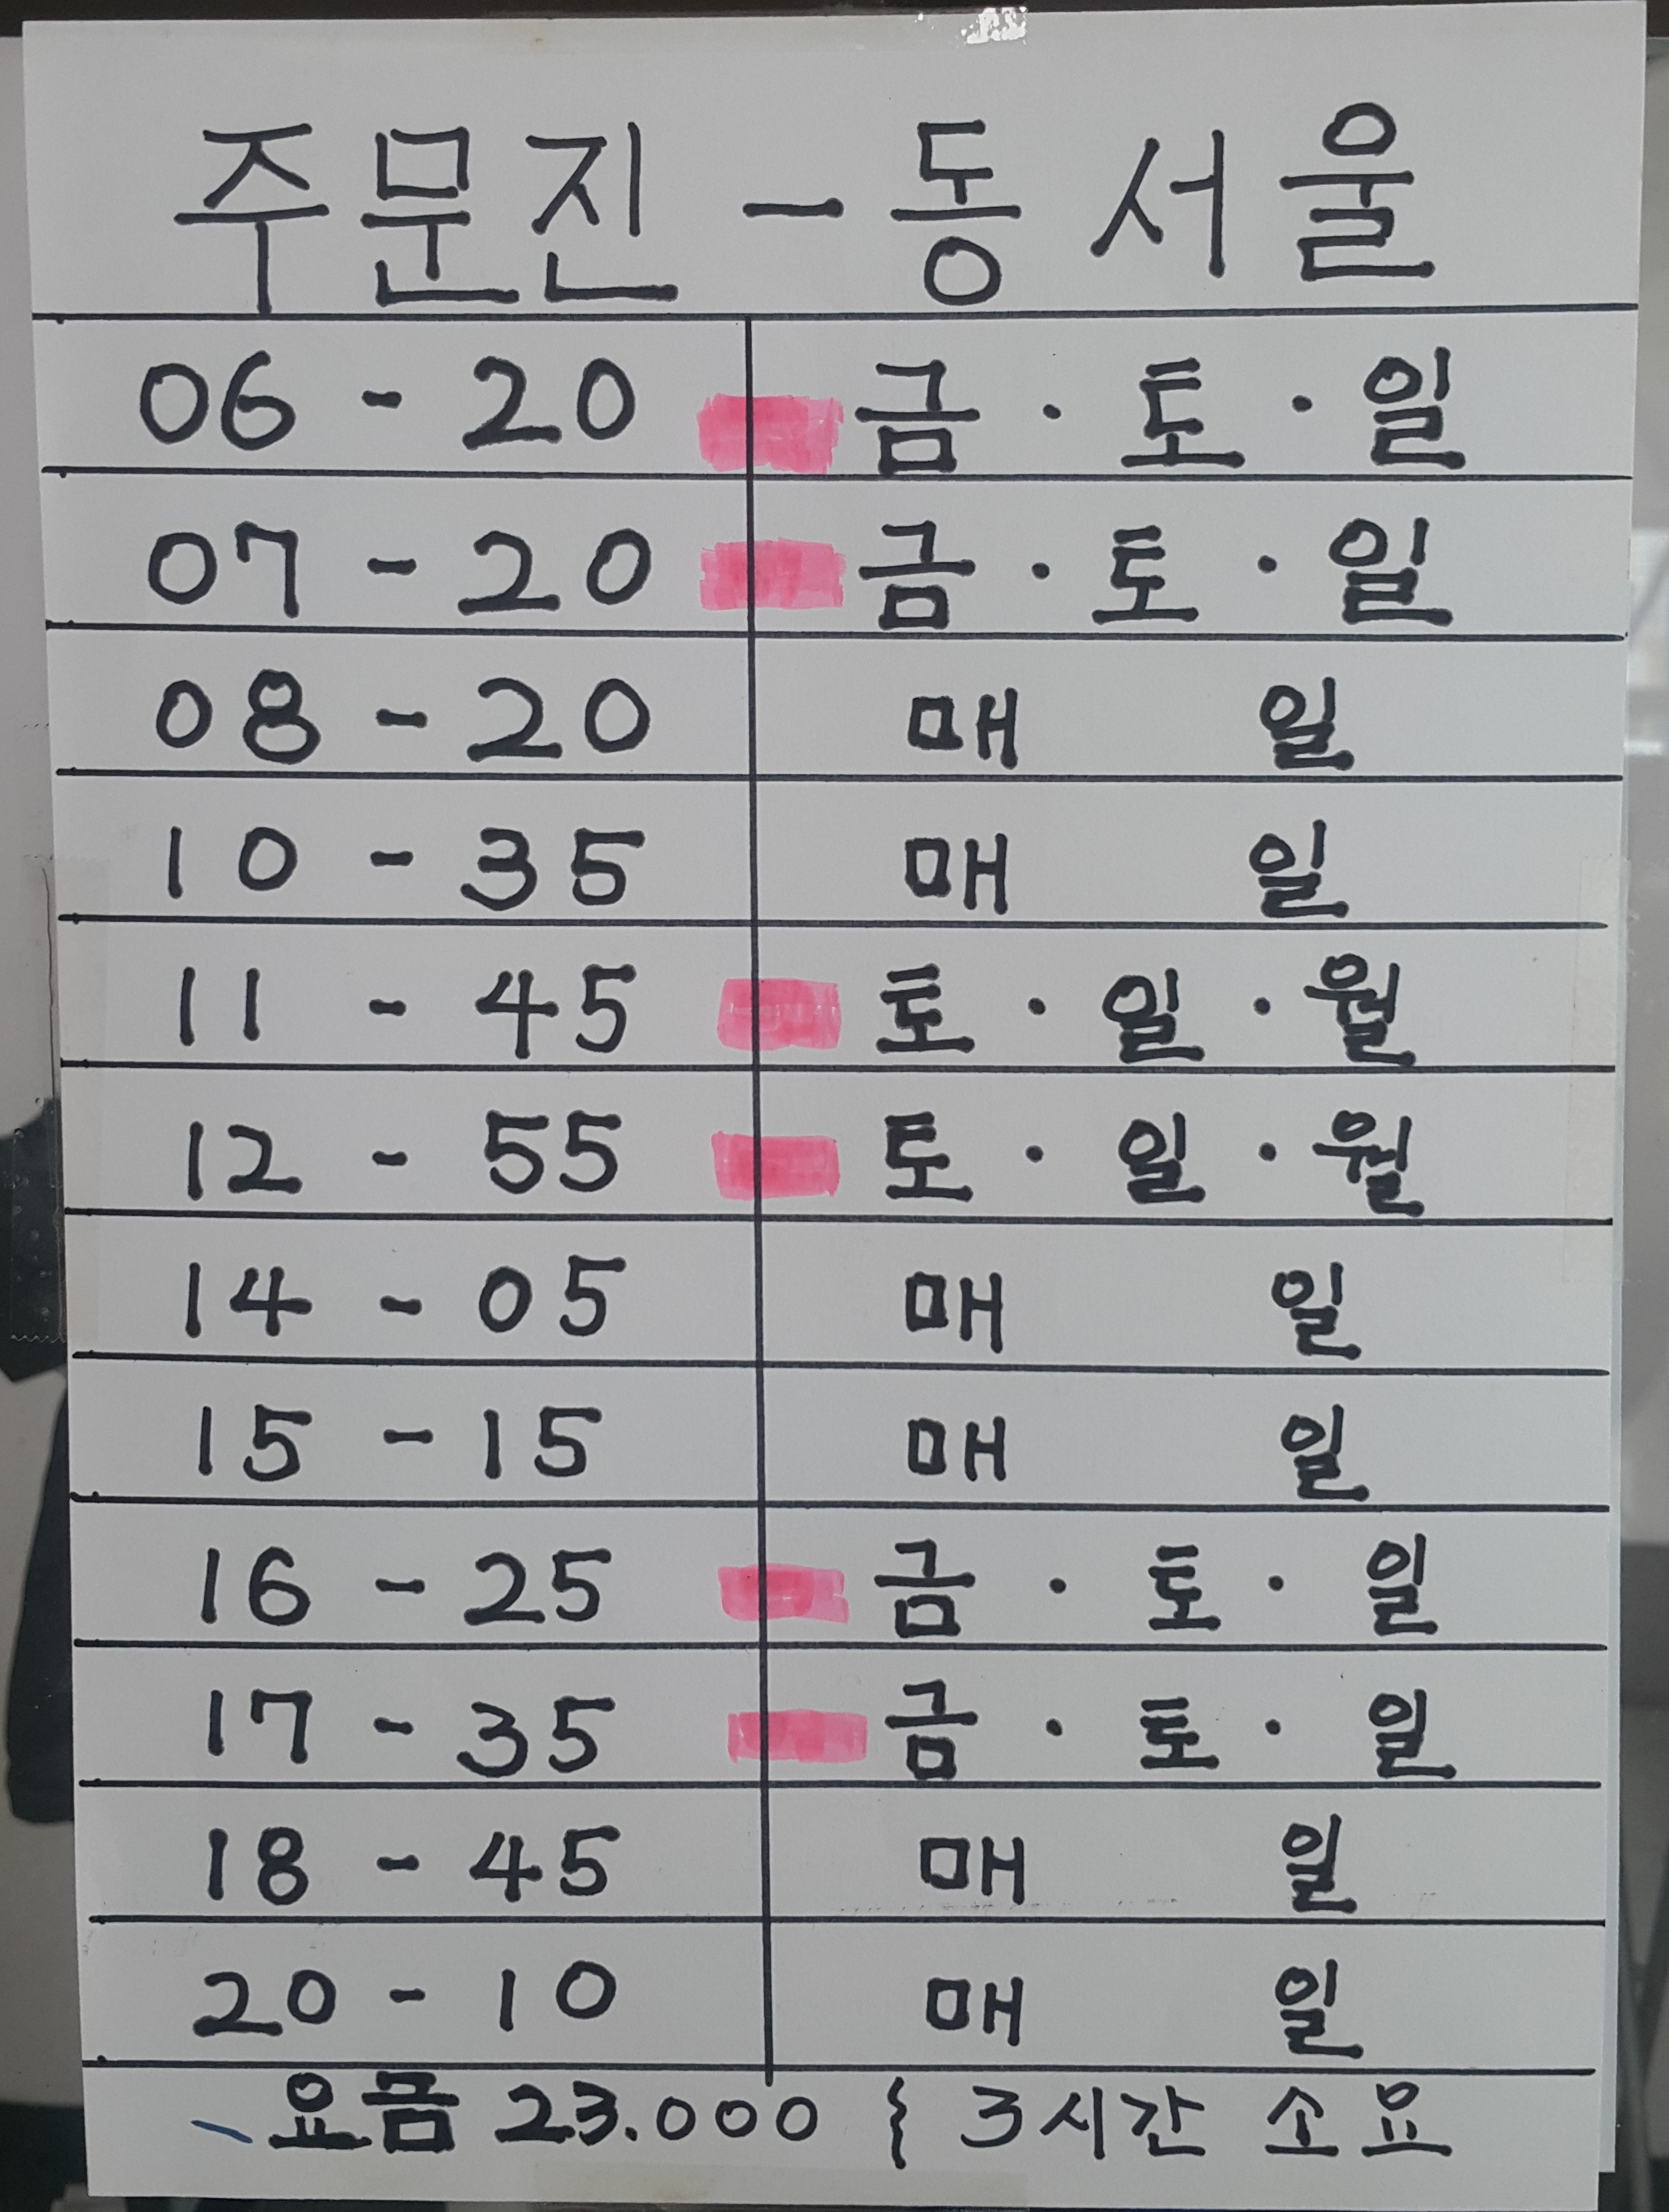 주문진 - 동서울
06 - 20 금 · 토 · 일
07 - 20 금 · 토 · 일
08 - 20 매 일
10 - 35 매 일
11 - 45 토 · 일 · 월
12 - 55 토 · 일 · 월
14 - 05 매 일
15 - 15 매 일
16 - 25 금 · 토 · 일
17 - 35 금 · 토 · 일
18 - 45 매 일
20 - 10 매 일
요금 23.000 { 3시간 소요